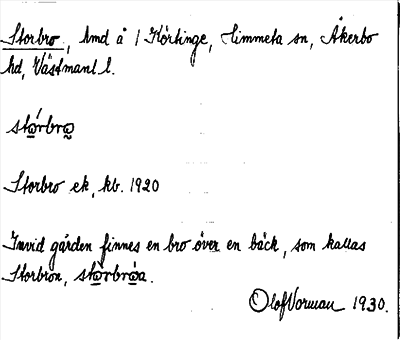 Storbro, lmd å 1 Körtinge, Himmeta sn, Åkerbo
hd, Västmanl l.
stórbro
Storbro ek, kb. 1920
Invid gården finnes en bro över en bäck, som kallas
Storbron, stórbróa.
Olof Vorman 1930.